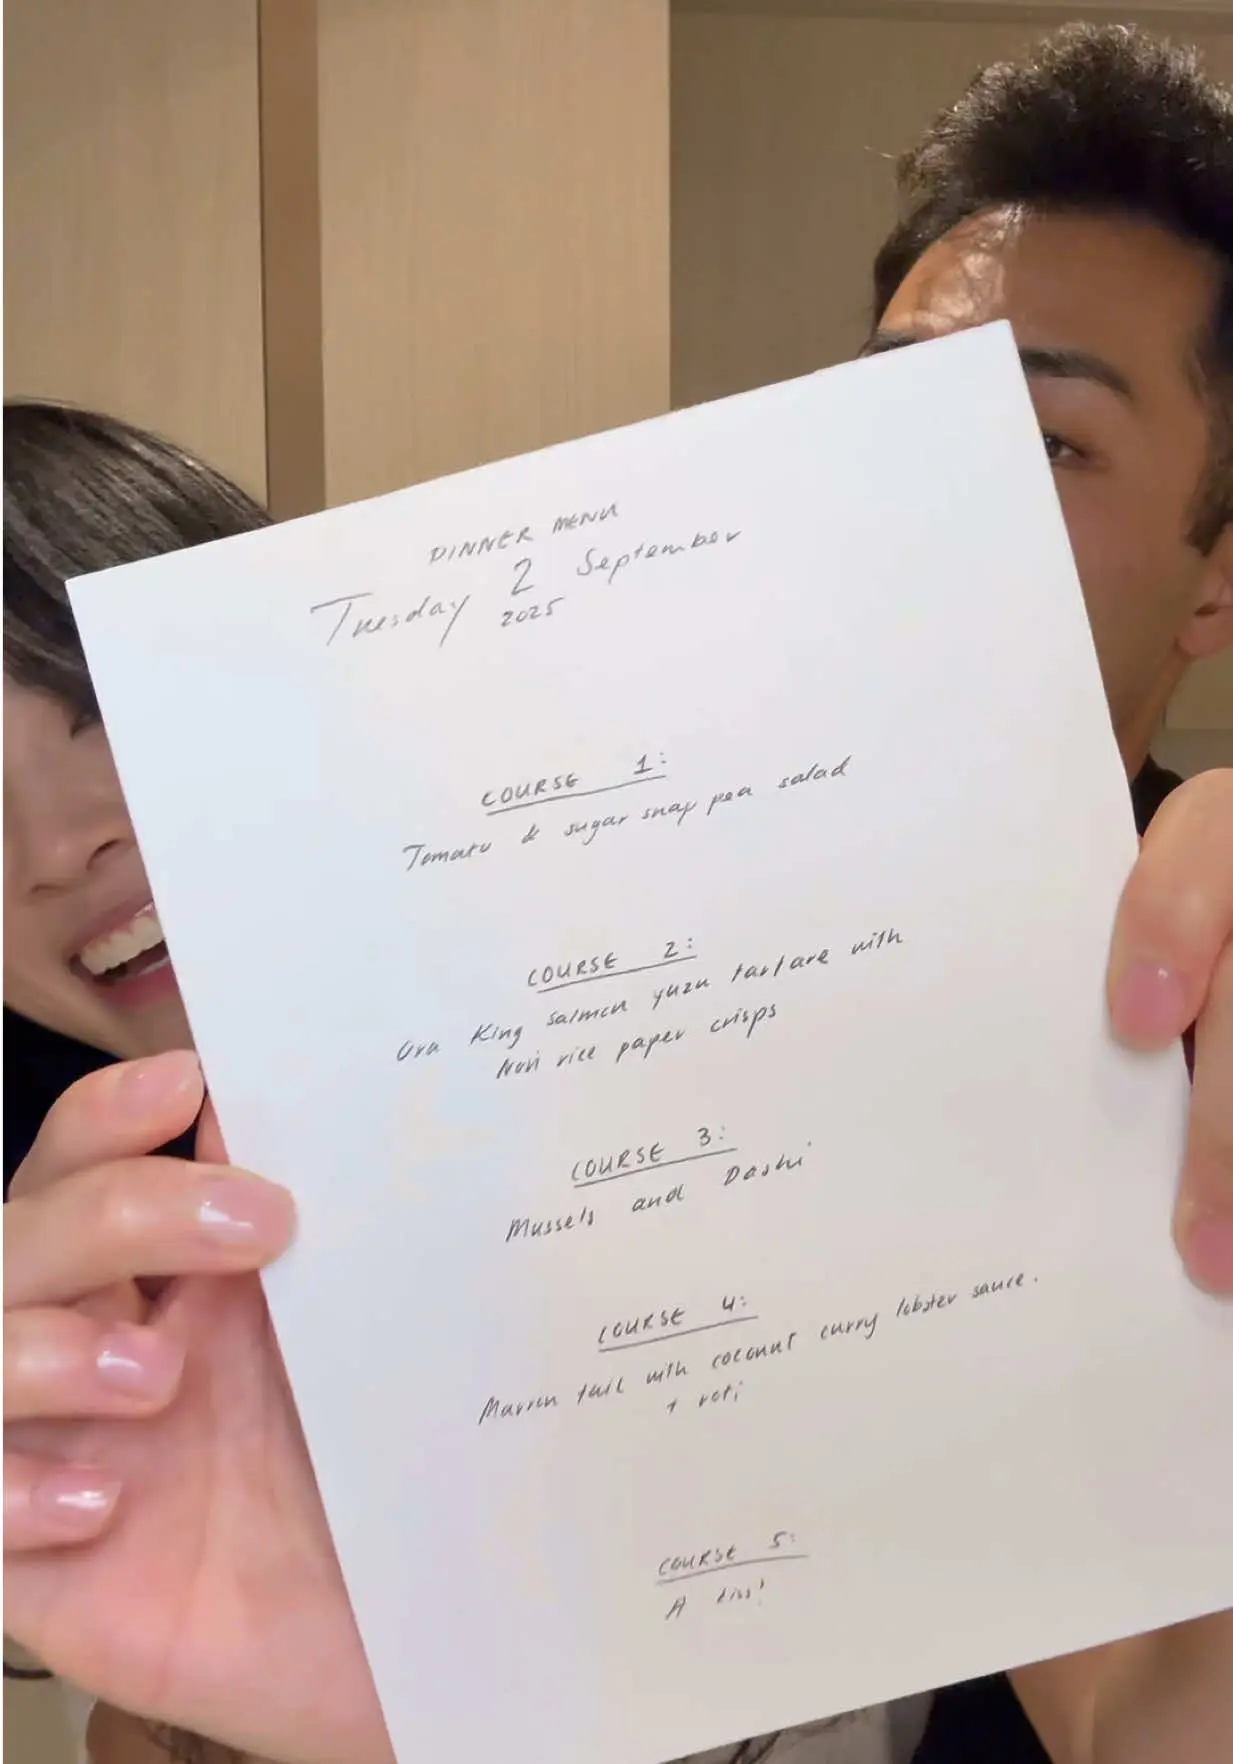 DINNER MENU
Tuesday 2 September
2025
COURSE 1:
Tomato & sugar snap pea salad
COURSE 2:
Ora King salmon yuzu tartare with
Nori rice paper crisps
COURSE 3:
Mussels and Dashi
COURSE 4:
Marron tail with coconut curry lobster sauce.
+ roti
COURSE 5:
A kiss!